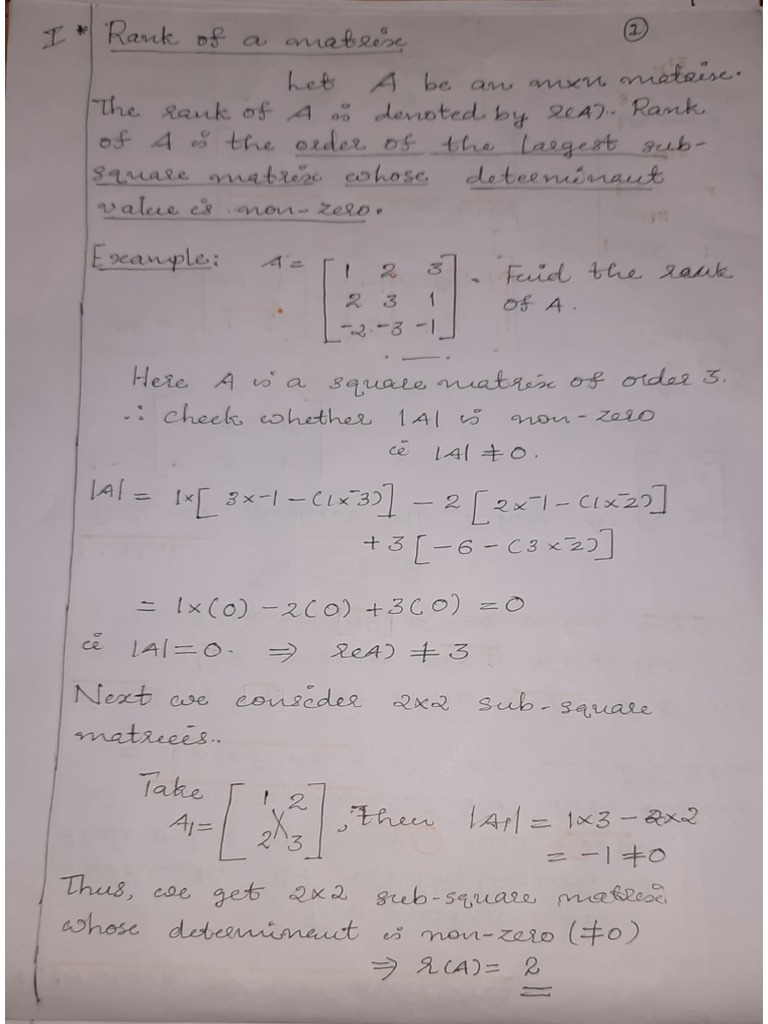 I * Rank of a matrix ①
Let A be an mxn matrix.
The rank of A is denoted by r(A). Rank
of A is the order of the largest sub-
square matrix whose determinant
value is non-zero.
Example: A = [1 2 3]. Find the rank
2 3 1 of A.
-2 -3 -1
Here A is a square matrix of order 3.
∴ check whether |A| is non-zero
ie |A| ≠ 0.
|A| = 1x[3x-1-(1x-3)] - 2[2x-1-(1x-2)]
+3[-6-(3x-2)]
= 1x(0) -2(0) +3(0) = 0
ie |A|=0. ⇒ r(A) ≠ 3
Next we consider 2x2 sub-square
matrices..
Take
A₁ = [1 2
2 3], then |A₁| = 1x3 - 2x2
= -1 ≠ 0
Thus, we get 2x2 sub-square matrix
whose determinent is non-zero (≠0)
⇒ r(A) = 2